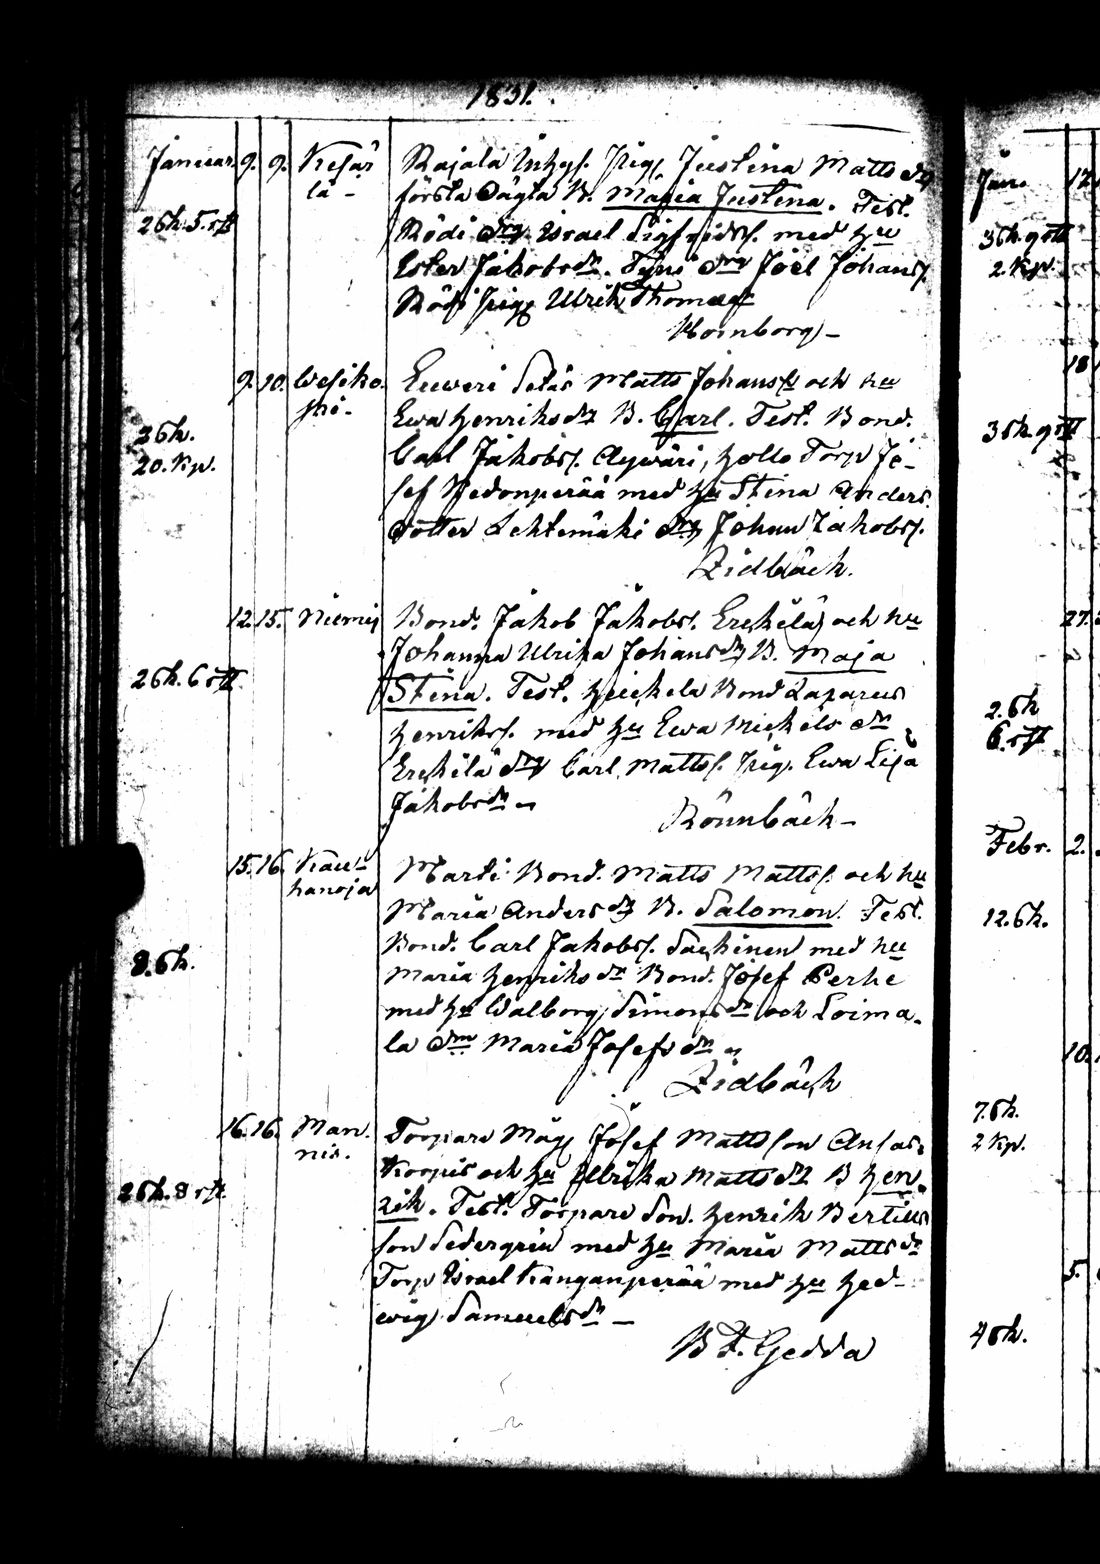 1831.
Januar. 9. 9. Kesär
lä -
Rajala Inhys. Pig. Justina Matts dr
första ägta B. Maria Justina. Test.
26k. 5 rst
Rödi drg Israel Sigfridss. med hu
Ester Jakobs dr. dm Joel Johans
Rödi Pig Ulrik Thomas
Homborg -
9. 10. Wesiko.
Matts Johanss och hu
Ewa Henriks dr B. Carl. Test. Bond.
36k.
Carl Jakobs. Aywäri, Hollo Torp Jo-
20. Kp.
sef Nedonperää med hu Stina Anders
dotter Lehtemäki drg Johan Jakobs.
Zidbäck.
12. 15. Niemis
Bond. Jakob Jakobs. Erckilä och hu
Johanna Ulrika Johans dr B. Maja
26k. 6 rst
Stina. Test. Bond Lazarus
Henriks. med hu Ewa Mickels dr
Erckilä drg Carl Matts. Pig. Ewa Lisa
Jakobs dr
Rönnbäck -
15. 16. Kau-
hanoja
Marti Bond. Matts Matts. och hu
Maria Anders dr B. Salomon. Test.
8. 6k.
Bond. Carl Jakobs. Säckinen med hu
Maria Henriks dr Bond. Josef Perhe
med hu Walborg Simons dr och Loima-
la dm Maria Josefs dr
Zidbäck
16. 16. Man-
nis.
Torpare Måg Josef Mattsson Ansas
Korpis och hu Ullrika Matts dr B Hen-
26k. 8 rst
rik. Test. Torpare Son. Henrik Bertils
son Sedergren med hu Maria Matts dr
Torp Israel Kanganperää med hu Hed-
wig Samuels dr -
B F. Gedda
Jan. 12
36k.
2. Kp.
18
36k.
27.
2. 6k
6. rst
Febr. 2.
12. 6k.
10.
7. 6k.
2 Kp.
5.
4 6k.